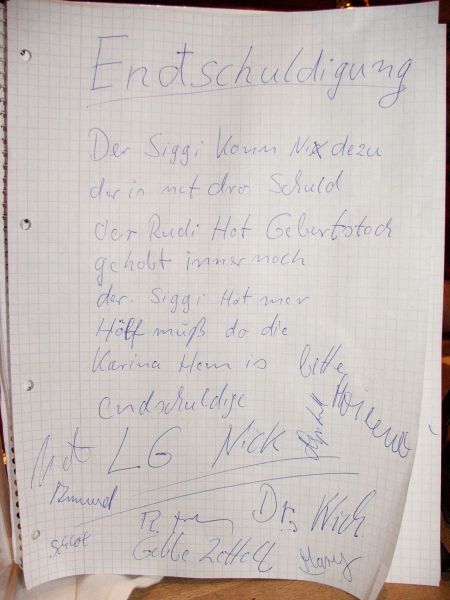 Endschuldigung
Der Siggi Konn Nix dezu
der is net dro Schuld
der Rudi Hot Geburtstoch
gehobt immer noch
der. Siggi Hot mer
Hölf müß do die
Karina Hem is bitte
endschuldige
LG Nick
Dr. Wich
Gabbe Zettel
Mary